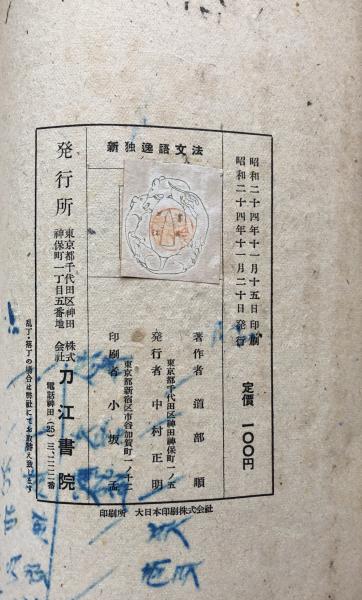 新独逸語文法
昭和二十四年十一月十五日 印刷
昭和二十四年十一月二十日 発行
定價 一〇〇円
著作者 道部順
東京都千代田区神田神保町一ノ五
発行者 中村正明
東京都新宿区市谷加賀町一ノ十二
印刷者 小坂孟
発行所
東京都千代田区神田
神保町一丁目五番地
株式会社 刀江書院
電話神田(25)三、二二二番
印刷所 大日本印刷株式会社
乱丁・落丁の場合は弊社にてお取替え致します